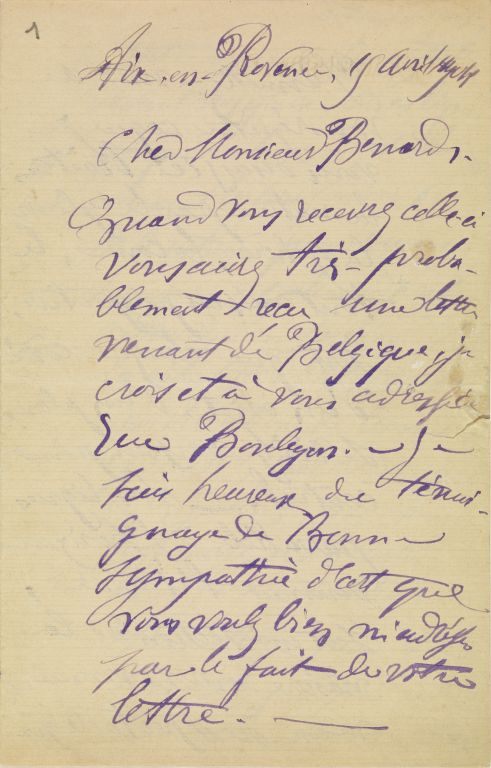 1
Aix-en-Provence, 15 avril 1904
Cher Monsieur Bernard,
Quand vous recevrez celle-ci
vous aurez très-proba-
blement reçu une lettre
venant de Belgique, je
crois et à vous adressée
rue Boulegon. – Je
suis heureux du témoi-
gnage de Bonne
sympathie d'art que
vous voulez bien m'adresser
par le fait de votre
lettre. —